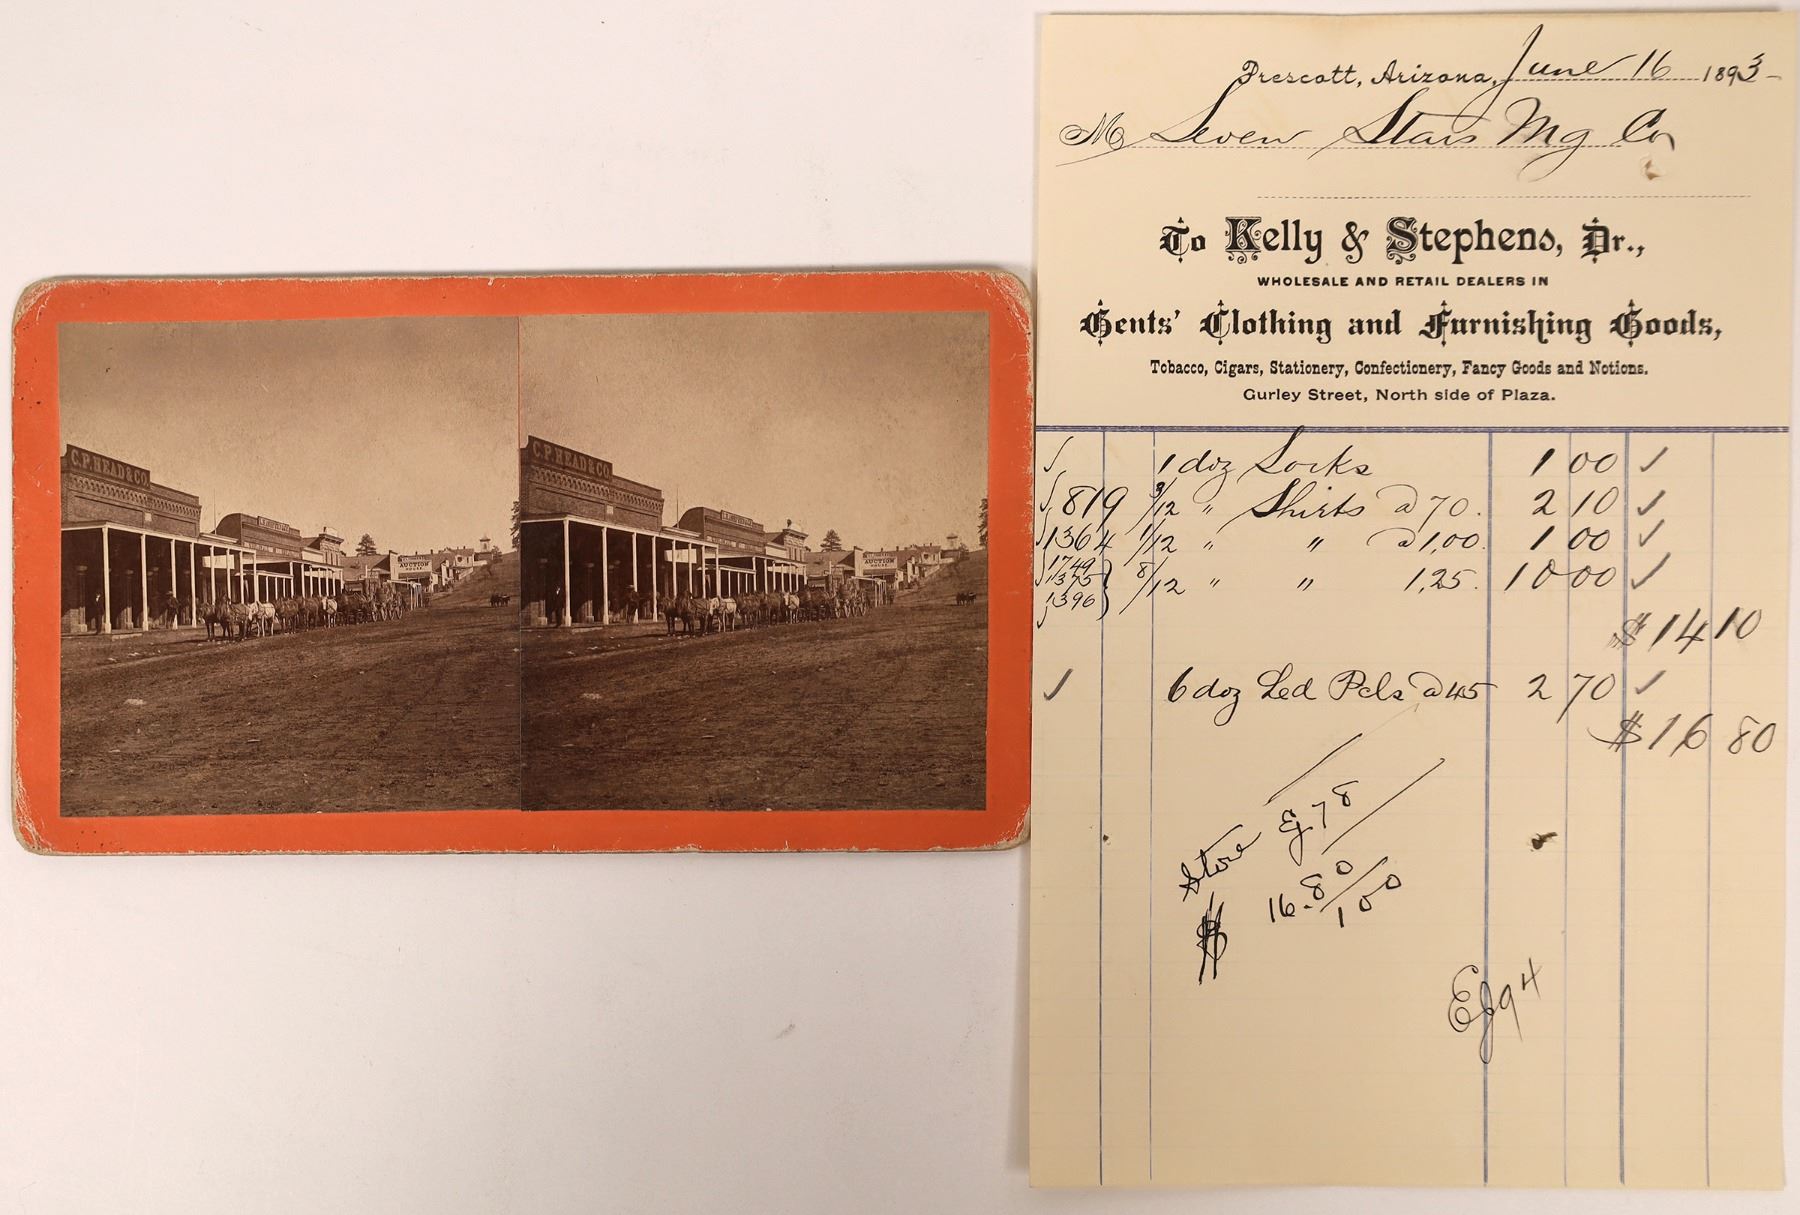 C.P. HEAD & CO.
AUCTION
HOUSE
C.P. HEAD & CO.
AUCTION
HOUSE
Prescott, Arizona, June 16 1893
M Seven Stars Mg Co
To Kelly & Stephens, Dr.,
WHOLESALE AND RETAIL DEALERS IN
Gents' Clothing and Furnishing Goods,
Tobacco, Cigars, Stationery, Confectionery, Fancy Goods and Notions.
Gurley Street, North side of Plaza.
✓ 1 doz Socks 1 00 ✓
✓ 819 3/12 " Shirts @ 70. 2 10 ✓
✓ 1364 1/12 " " @ 1,00. 1 00 ✓
1749
1375 } 8/12 " " 1,25. 10 00 ✓
1396
$14 10
✓ 6 doz Led Pcls @ 45 2 70 ✓
$16 80
Store Ej 78
$ 16.80/100
Ej94